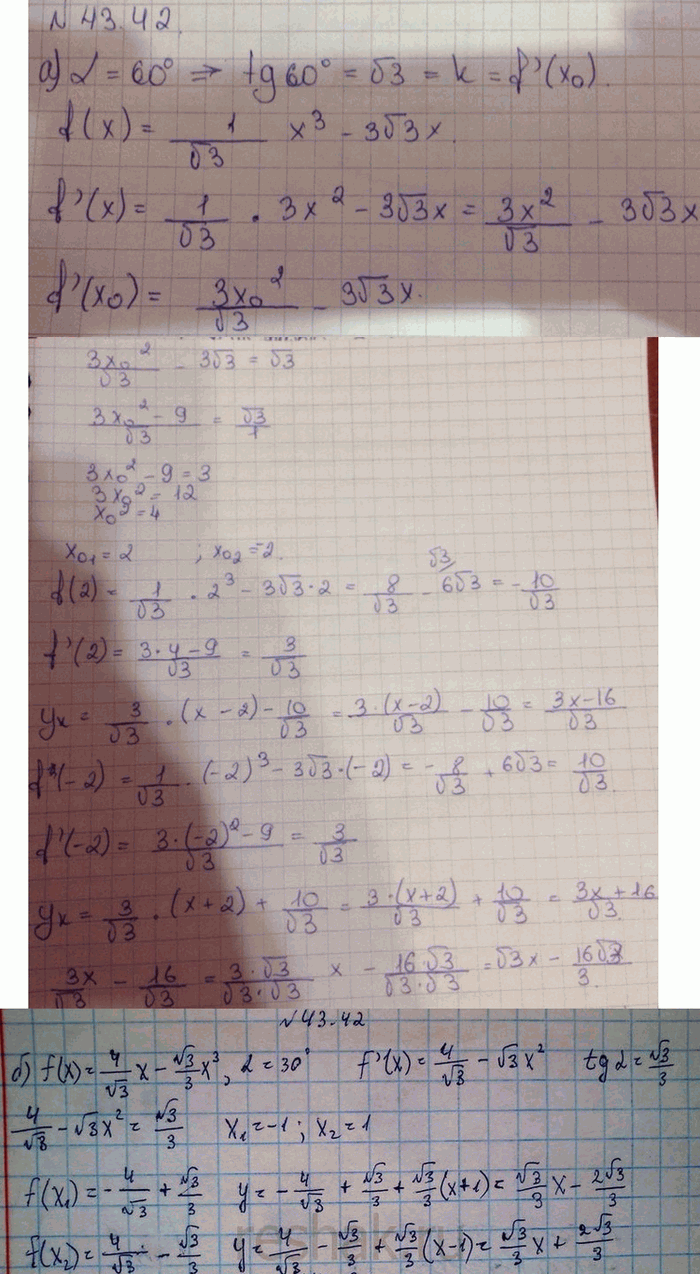 № 43.42.
а) α = 60° ⇒ tg 60° = √3 = k = f'(x₀).
f(x) = 1/√3 x³ - 3√3x.
f'(x) = 1/√3 · 3x² - 3√3x = 3x²/√3 - 3√3x
f'(x₀) = 3x₀²/√3 - 3√3x.
3x₀²/√3 - 3√3 = √3
(3x₀² - 9)/√3 = √3/1
3x₀² - 9 = 3
3x₀² = 12
x₀² = 4
x₀₁ = 2 ; x₀₂ = -2.
f(2) = 1/√3 · 2³ - 3√3·2 = 8/√3 - 6√3 (√3/) = -10/√3
f'(2) = (3·4-9)/√3 = 3/√3
yₓ = 3/√3 · (x - 2) - 10/√3 = 3·(x-2)/√3 - 10/√3 = (3x-16)/√3
f(-2) = 1/√3 · (-2)³ - 3√3·(-2) = -8/√3 + 6√3 = 10/√3.
f'(-2) = (3·(-2)²-9)/√3 = 3/√3
yₓ = 3/√3 · (x+2) + 10/√3 = 3·(x+2)/√3 + 10/√3 = (3x+16)/√3.
3x/√3 - 16/√3 = (3·√3)/(√3·√3) x - (16·√3)/(√3·√3) = √3x - 16√3/3.
№43.42
б) f(x) = 4/√3 x - √3/3 x³, α = 30° f'(x) = 4/√3 - √3x² tg α = √3/3
4/√3 - √3x² = √3/3 x₁ = -1 ; x₂ = 1
f(x₁) = -4/√3 + √3/3 y = -4/√3 + √3/3 + √3/3(x+1) = √3/3 x - 2√3/3
f(x₂) = 4/√3 - √3/3 y = 4/√3 - √3/3 + √3/3(x-1) = √3/3 x + 2√3/3